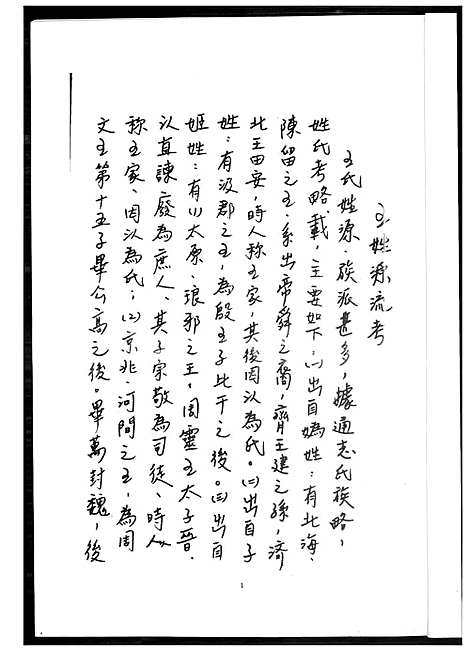 王姓源流考
王氏姓源、族派甚多，據通志氏族略，
姓氏考略載，主要如下：㈠出自媯姓：有北海、
陳留之王、系出帝舜之裔，齊王建之孫，濟
北王田安，時人称王家，其後因以為氏。㈡出自子
姓：有汲郡之王，為殷王子比干之後。㈢出自
姬姓：有⑴太原、琅邪之王，周靈王太子晉、
以直諫廢為庶人、其子宗敬為司徒、時人
称王家、因以為氏；⑵京兆、河間之王，為周
文王第十五子畢公高之後。畢萬封魏，後
1